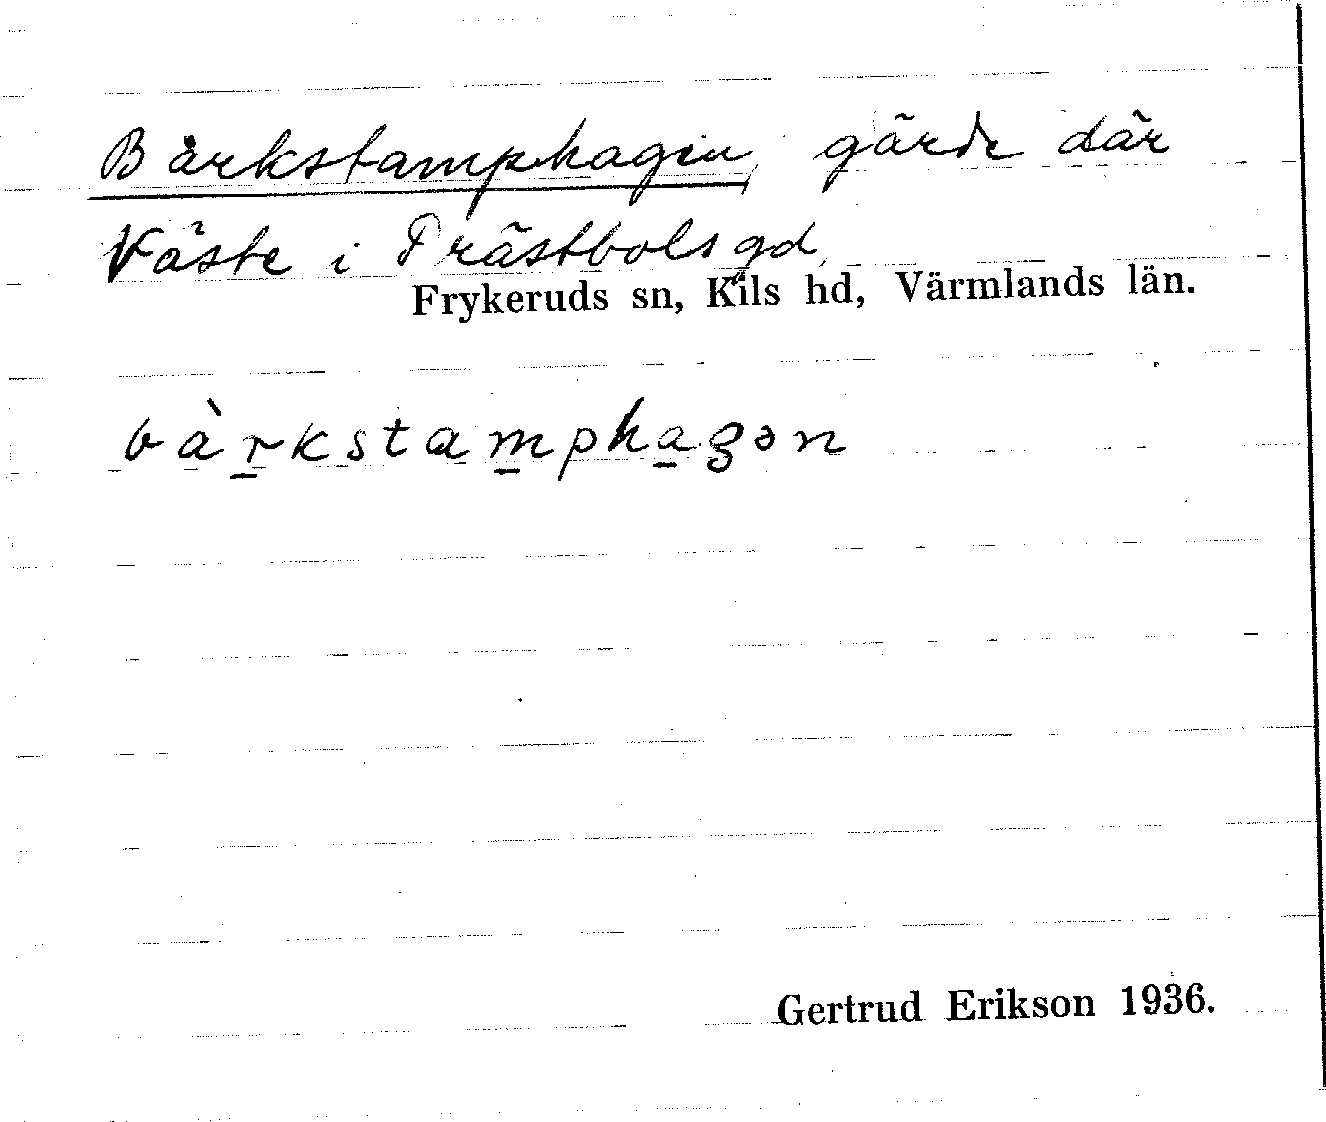 Bärkstamphagen, gärde där
Väste i Prästbols gd,
Frykeruds sn, Kils hd, Värmlands län.
bàrkstamphagən
Gertrud Erikson 1936.